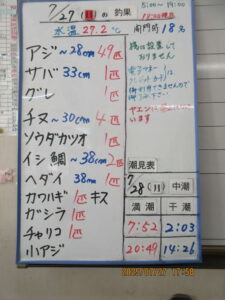 7/27(日)の釣果
5:00~19:00
水温 27.2℃
南門前 18名
アジ~28cm 49匹
サバ 33cm 1匹
グレ 1匹
チヌ~30cm 4匹
ソウダカツオ 1匹
イシ鯛~38cm 2匹
ヘダイ 38cm 1匹
カワハギ 1匹 キス
ガシラ 1匹
チャリコ 1匹
小アジ
橋は設置して
おりません
電子マネー
クレジットカード
います
潮見表
7/28(月) 中潮
満潮 干潮
7:52 2:03
20:49 14:26
2025/07/27 17:58